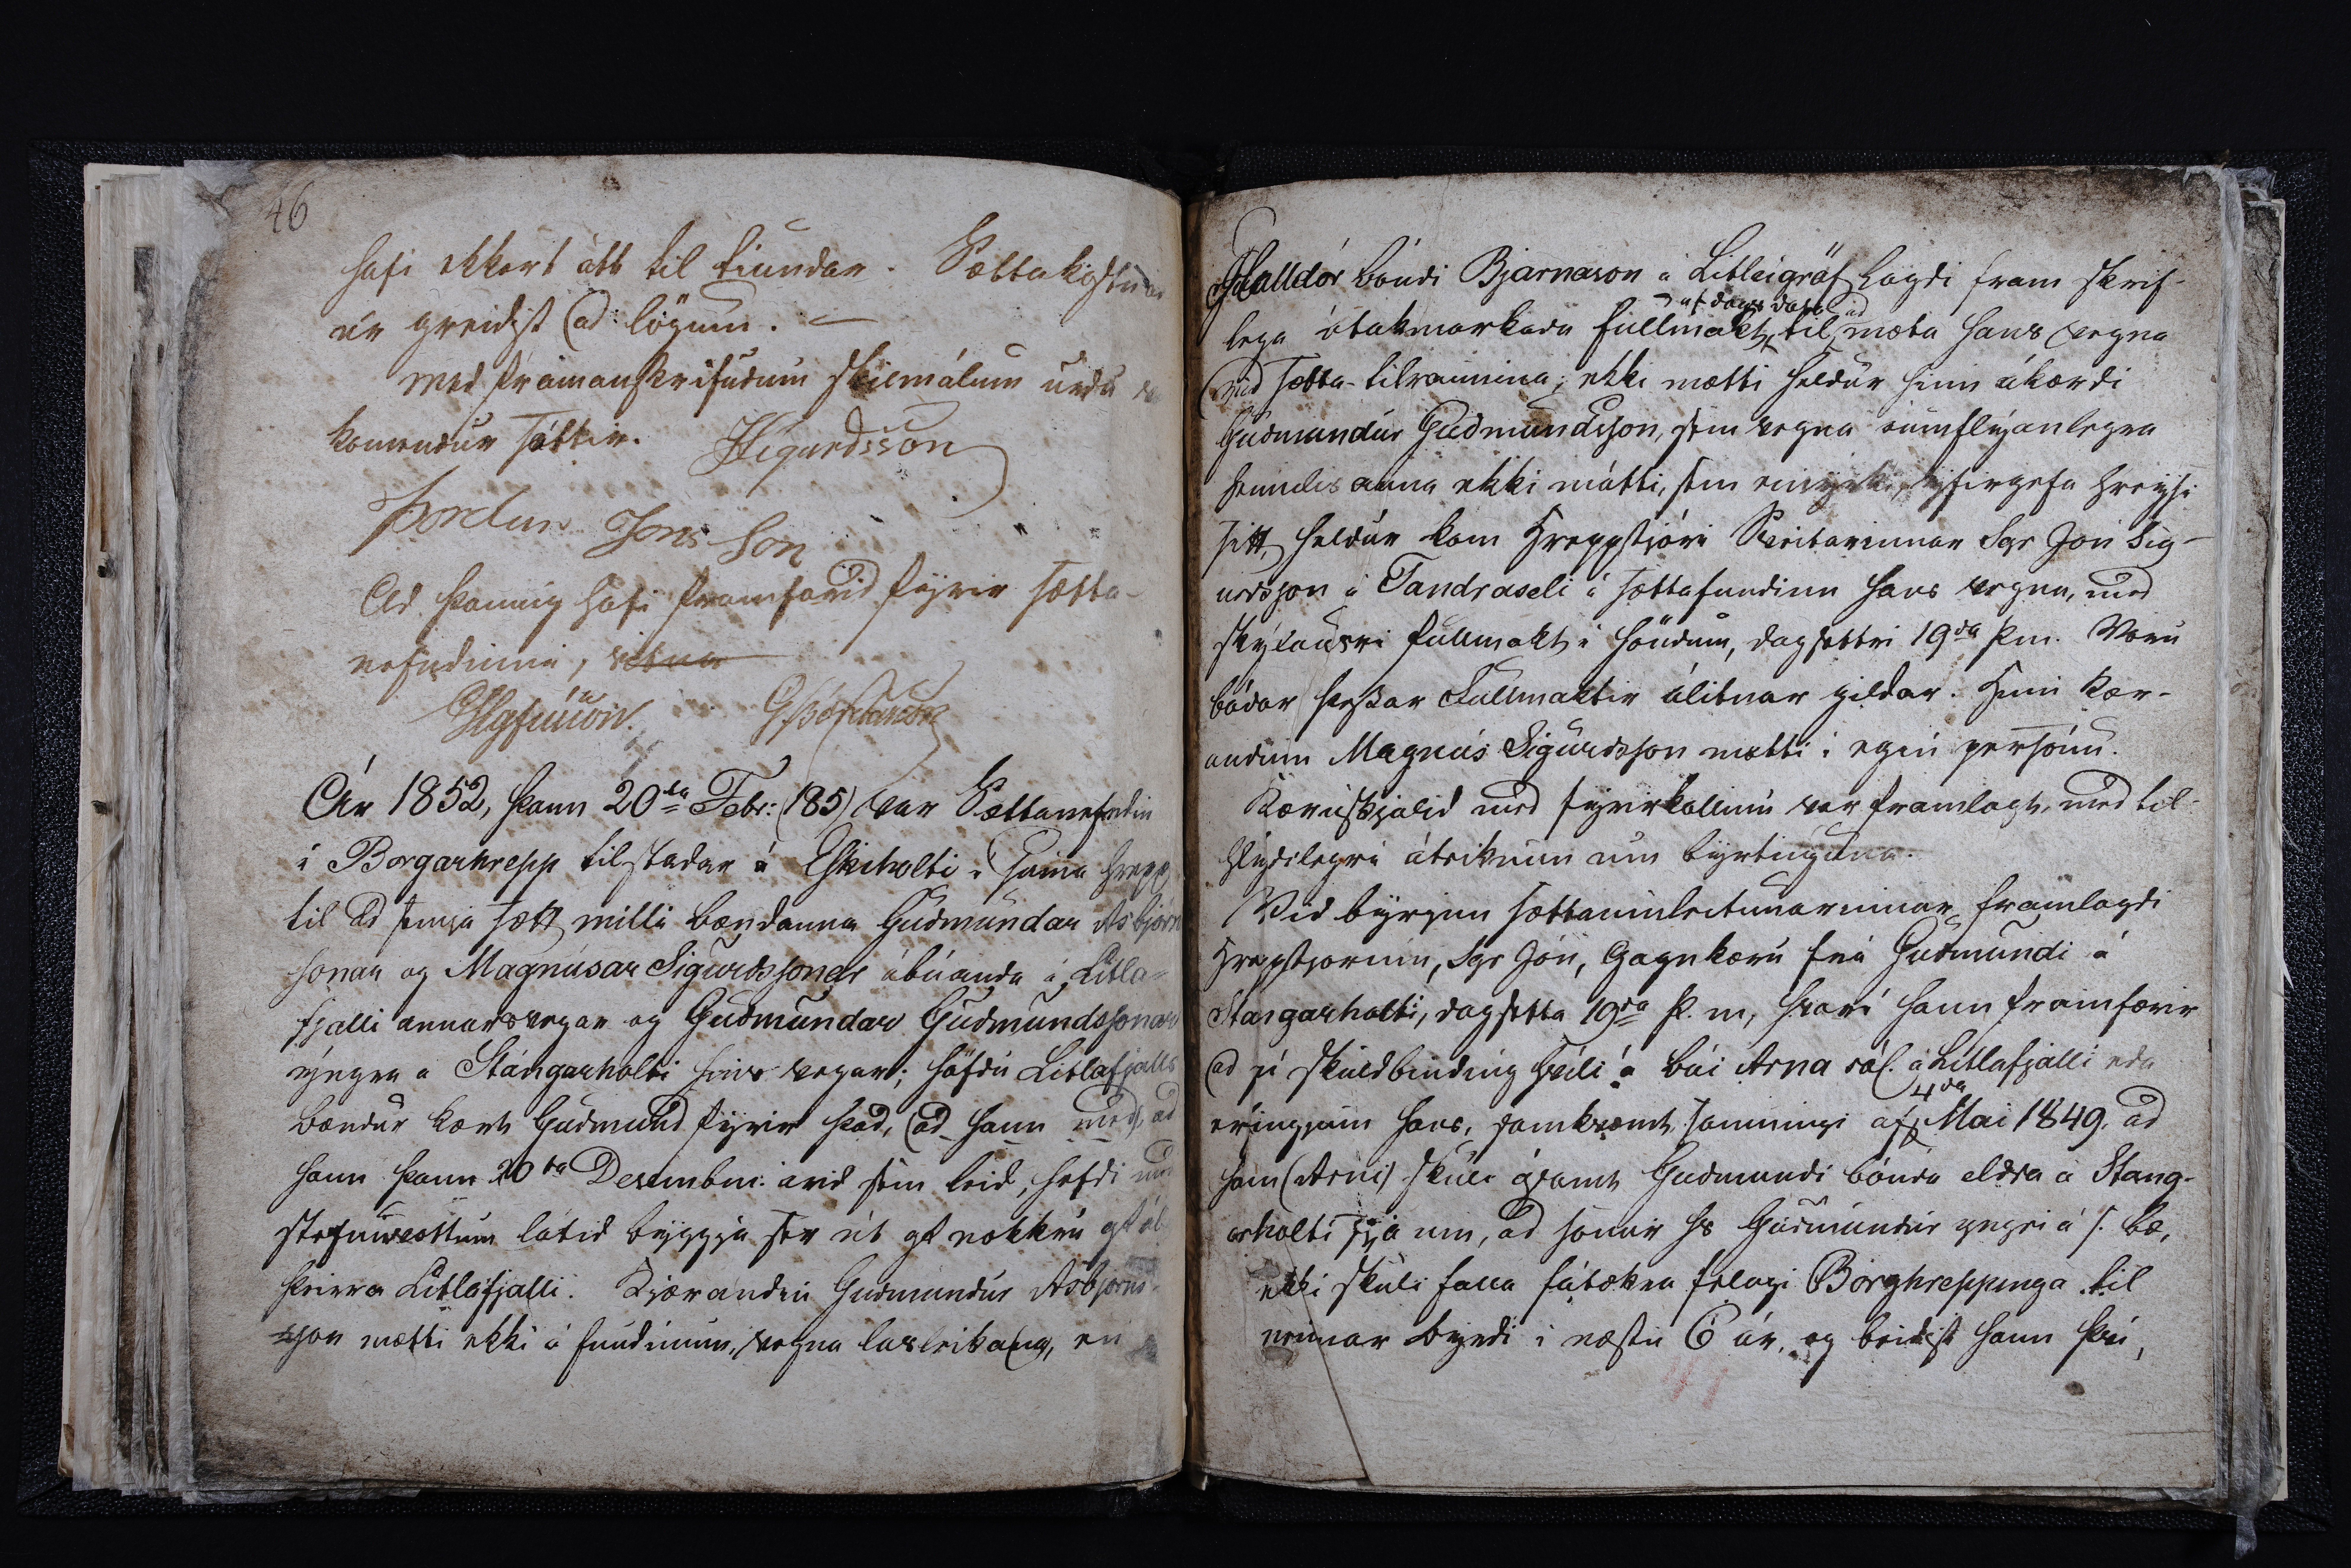 46
hafi ekkert átt til tiundar. Sættakostnadr
úr greidist ad lögum.
Med framanskrifudum skilmálum urdu
komendur sáttir. HSigurdsson
Þordur Jons Son
Ad þannig hafi framfarid fyrir sætta-
nefndinni, vitna
Ár 1852, þann 20ta Febr: (185) var Sættanefndin
i Borgarhrepp tilstadar á Eskiholti i sama hrepp
til ad semja sætt milli bændanna Gudmundar Asbjörns
sonar og Magnúsar Sigurdssonar ábúanda á Litla-
fjalli annarsvegar og Gudmundar Gudmundssonar
yngra á Stángarholti hins vegar; höfdu Litlafjalls
bændur kært Gudmund fyrir þad, ad hann med, ad
hann þann 20ta Desembr: árid sem leid, hefdi med
stefnuvottum látid byggja ser út af nokkru af áb
þeirra Litlafjalli. Kjærandin Gudmundur Asbjörns-
son mætti ekki á fundinum, vegna lasleika, en
Halldór bóndi Bjarnason á Litlugröf lagdi fram skrif-
af dags dato ad
lega ótakmarkada fullmakt, til mæta hans vegna
vid sætta-tilraunina; ekki mætti heldur hinn ákærdi
Gudmundur Gudmundsson, sem vegna óumflýanlegra
heimilis anna ekki mátti, sem einyrki, yfirgefa hreysi
sitt, heldur kom Hreppstjóri Sveitarinnar Sgr Jón Sig-
urdsson á Tandraseli á sættafundinn hans vegna, med
skýlausri fullmakt i höndum, dagsettri 19da þm. Voru
bádar þessar Fullmaktir álitnar gildar. Hinn kær-
andinn Magnús Sigurdsson mætti i egin persónu.
Kæruskjalid med fyrirkallinu var framlagt, med til-
hlýdilegri áteiknun um byrtinguna.
Vid byrjun sættaumleitunarinnar framlagdi
Hreppstjorinn, Sgr Jón, Gagnkæru frá Gudmundi á
Stangarholti, dagsetta 19da þ. m, hvari hann framfærir
ad sú skuldbinding hvíli á búi Arna sál. á Litlafjalli eda
4da
erfingjum hans, samkvæmt samningi af Mai 1849. ad
hann (Arni) skuli ásamt Gudmundi bónda eldra á Stang-
arholti sjá um, ad sonur hs Gudmundur yngri á s. bæ,
ekki skuli falla fátækra felagi Borghreppinga til
neinnar byrdi i næstu 6 ár, og beidist hann þvi,